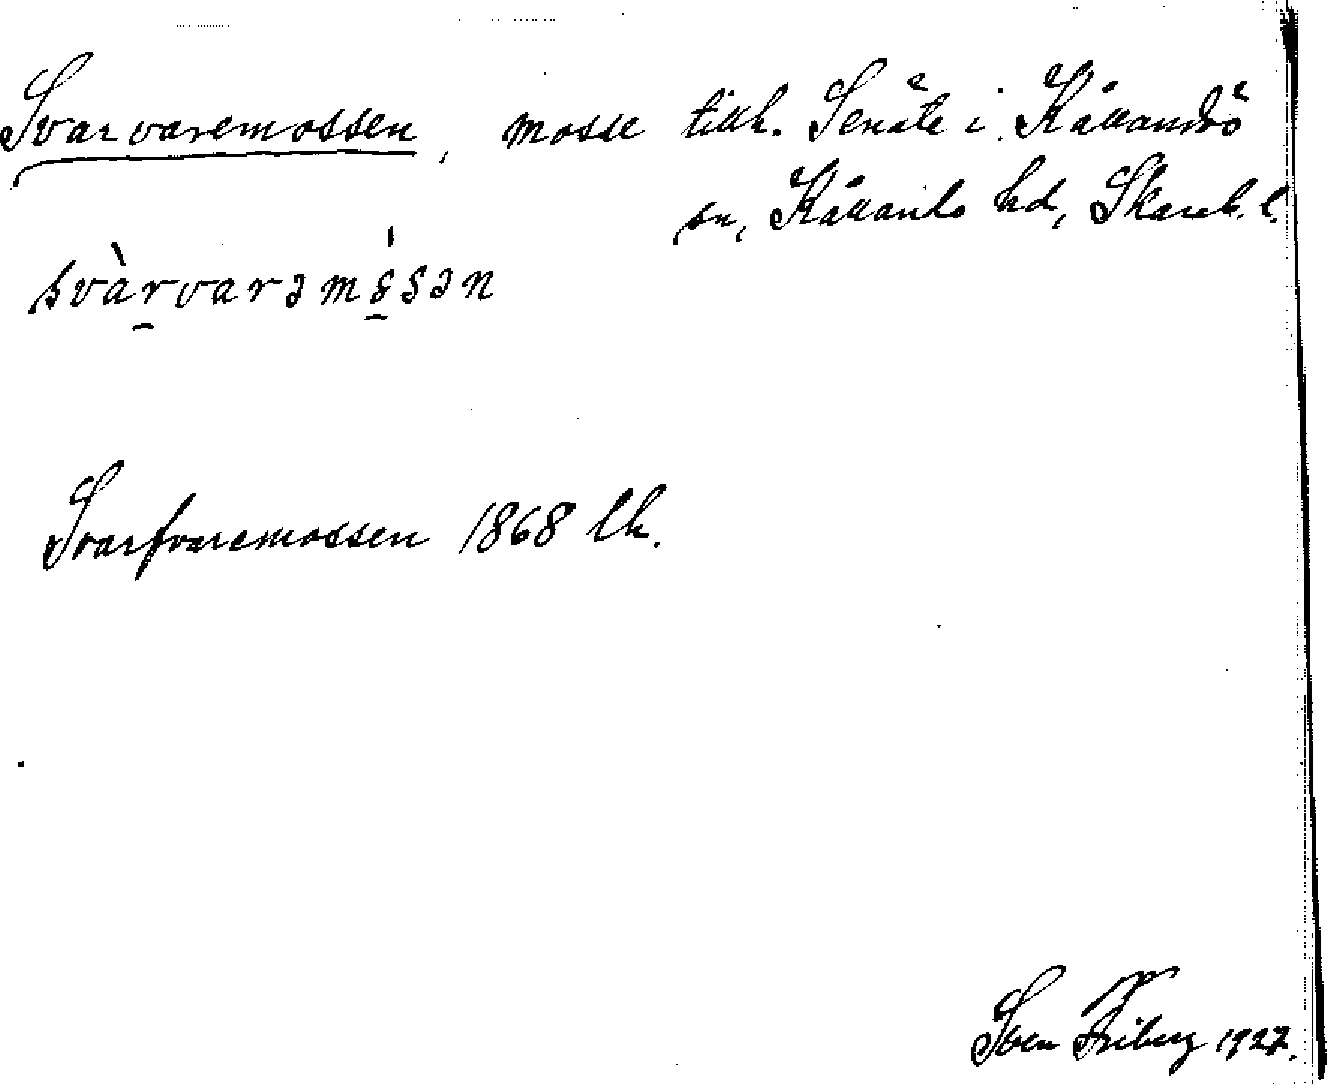 Svarvaremossen, mosse tillh. Senäte i Kållandsö
sn, Kållands hd, Skarab. l.
svàrvarəmósən
Svarfvaremossen 1868 lk.
Sven Friberg 1927.